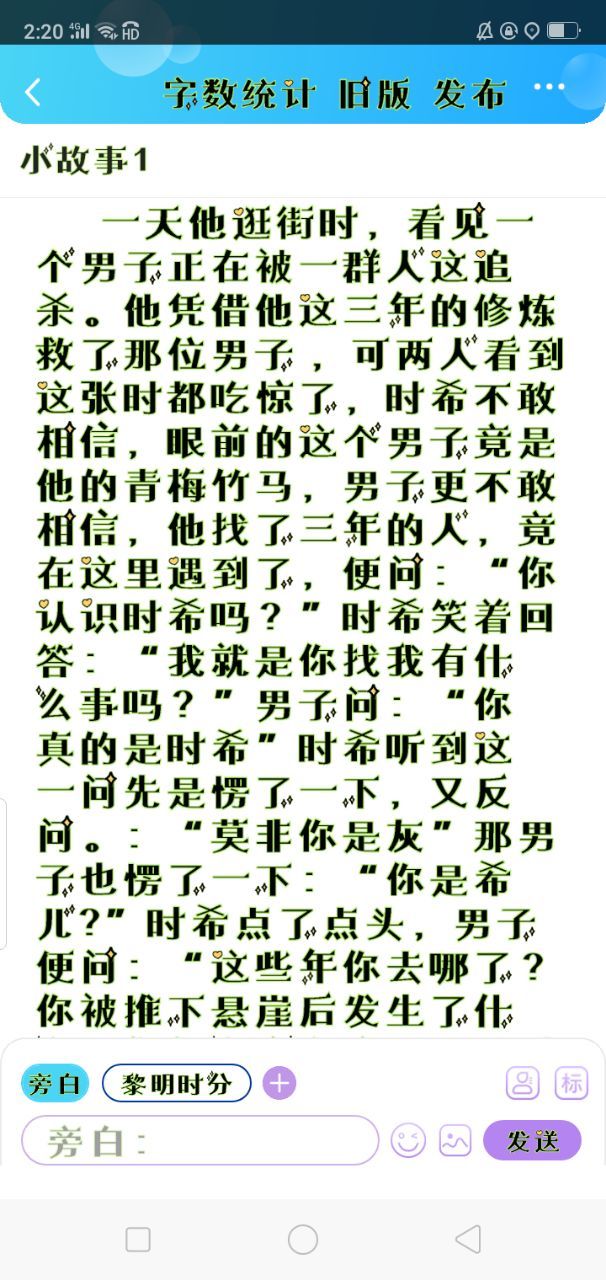 2:20 4G HD
字数统计 旧版 发布 ···
小故事1
一天他逛街时，看见一
个男子正在被一群人这追
杀。他凭借他这三年的修炼
救了那位男子，可两人看到
这张时都吃惊了，时希不敢
相信，眼前的这个男子竟是
他的青梅竹马，男子更不敢
相信，他找了三年的人，竟
在这里遇到了，便问：“你
认识时希吗？”时希笑着回
答：“我就是你找我有什
么事吗？”男子问：“你
真的是时希”时希听到这
一问先是愣了一下，又反
问。：“莫非你是灰”那男
子也愣了一下：“你是希
儿?”时希点了点头，男子
便问：“这些年你去哪了？
你被推下悬崖后发生了什
旁白 黎明时分 + 标
旁白： 发送